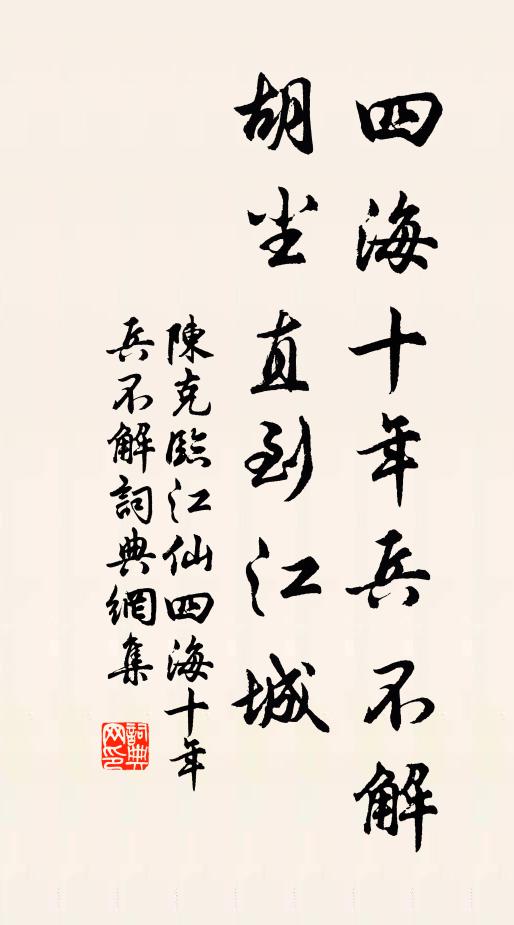 四海十年兵不解
胡尘直到江城
陳克臨江仙四海十年
兵不解詞典網集
詞典
网印